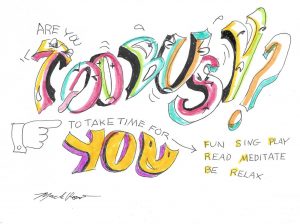 ARE YOU
TOO BUSY!?
TO TAKE TIME FOR
YOU
FUN SING PLAY
READ MEDITATE
BE RELAX